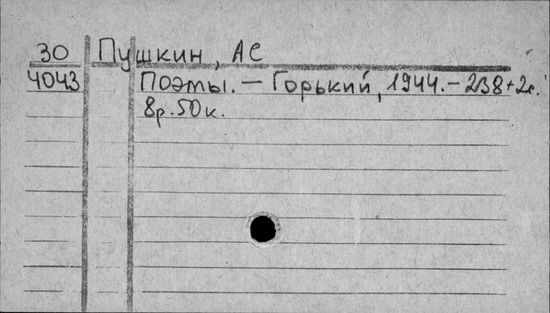 30 Пушкин, АС
4043 Поэмы. — Горький, 1944. — 238+2с.
8р. 50к.